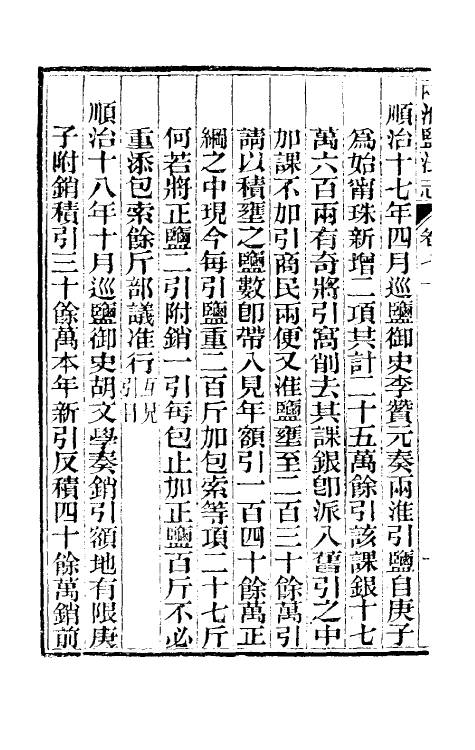 兩淮鹽法志 卷七
順治十七年四月巡鹽御史李贊元奏兩淮引鹽自庚子
爲始甯珠新增二項共計二十五萬餘引該課銀十七
萬六百兩有奇將引窩削去其課銀卽派入舊引之中
加課不加引商民兩便又淮鹽壅至二百三十餘萬引
請以積壅之鹽數卽帶入見年額引一百四十餘萬正
綱之中現今每引鹽重二百斤加包索等項二十七斤
何若將正鹽二引附銷一引每包止加正鹽百斤不必
重添包索餘斤部議准行互見引目
順治十八年十月巡鹽御史胡文學奏銷引額地有限庚
子附銷積引三十餘萬本年新引反積四十餘萬銷前